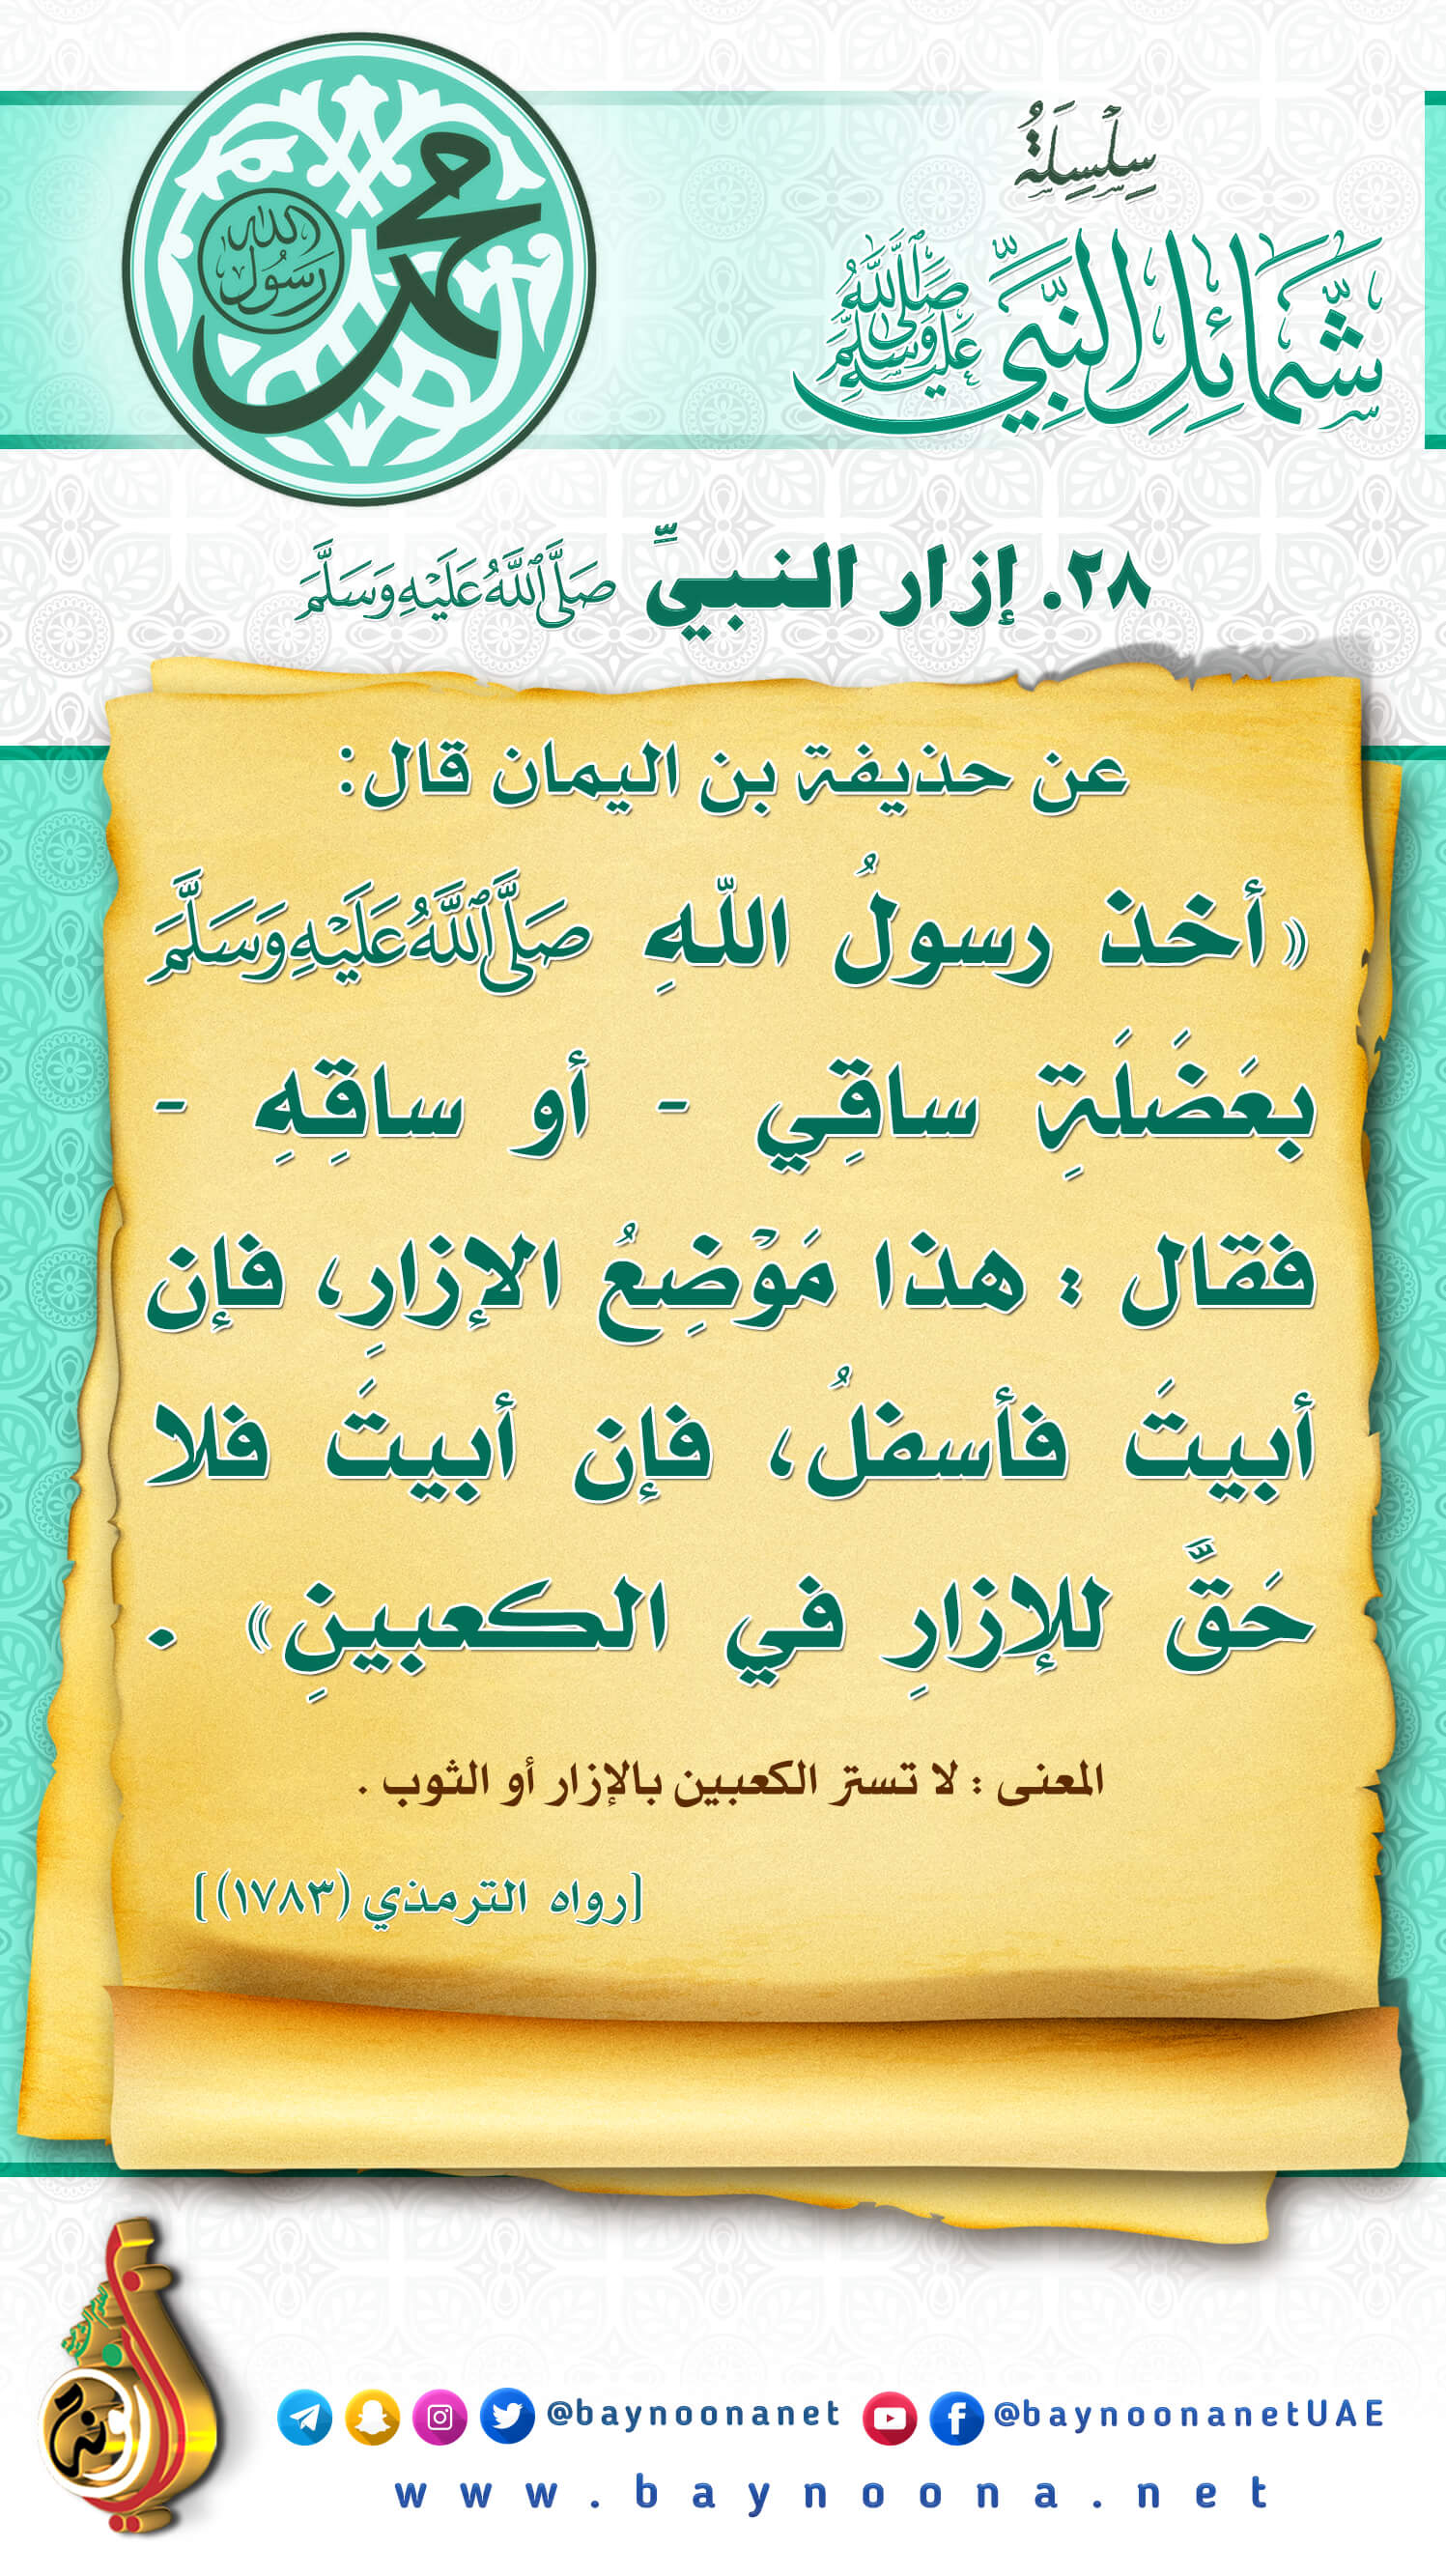 سِلْسِلَةُ
شَمَائِلِ النَّبِيِّ صَلَّى اللَّهُ عَلَيْهِ وَسَلَّمَ
محمد
رَسُول
الله
٢٨. إزار النبيِّ صَلَّى اللَّهُ عَلَيْهِ وَسَلَّمَ
عن حذيفة بن اليمان قال:
«أخذ رسولُ اللّهِ صَلَّى اللَّهُ عَلَيْهِ وَسَلَّمَ
بعَضَلَةِ ساقِي - أو ساقِهِ -
فقال : هذا مَوْضِعُ الإزارِ، فإن
أبيتَ فأسفلُ، فإن أبيتَ فلا
حَقَّ للإزارِ في الكعبينِ» .
المعنى : لا تستر الكعبين بالإزار أو الثوب .
[رواه الترمذي (١٧٨٣)]
@baynoonanet @baynoonanetUAE
www.baynoona.net